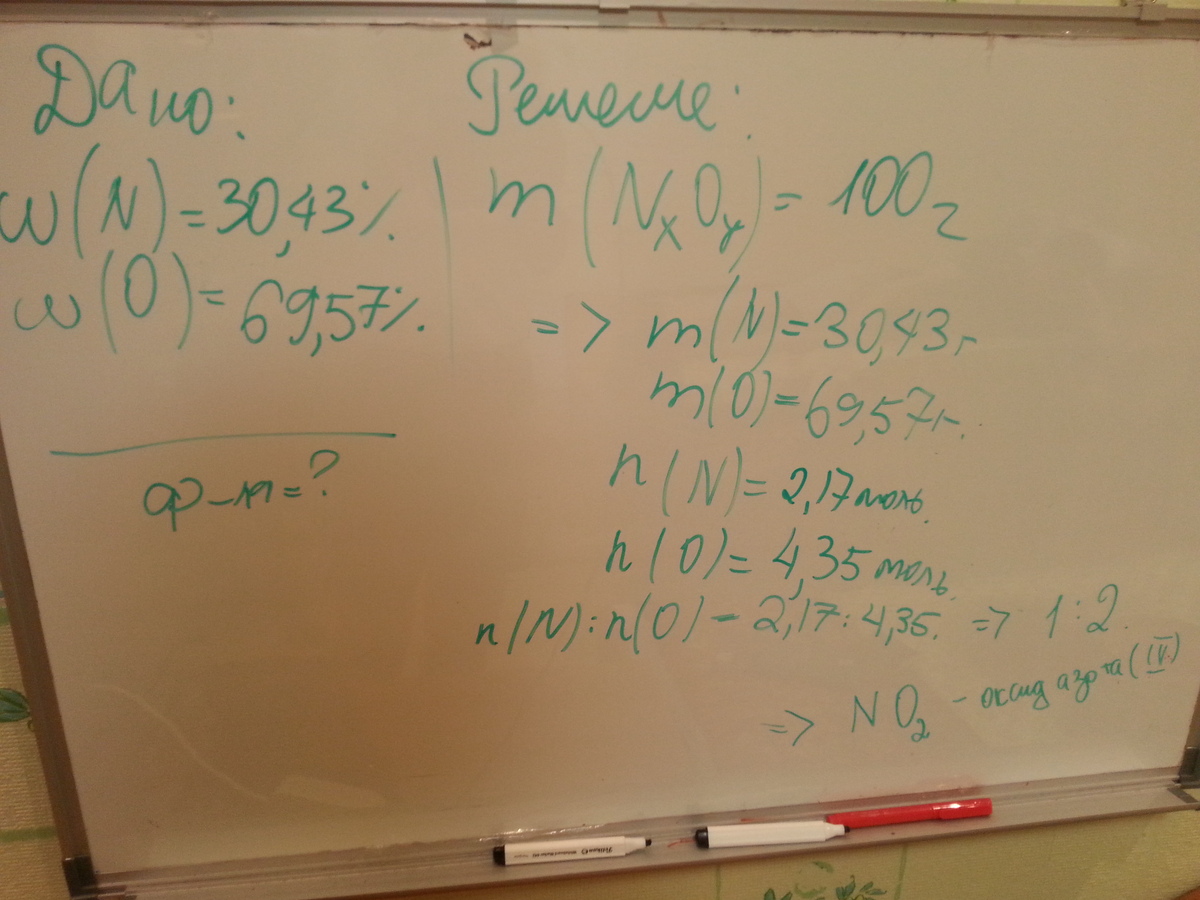 Дано:
ω(N)=30,43%
ω(O)=69,57%
ф-ла=?
Решение:
m(NxOy)=100г
=> m(N)=30,43г
m(O)=69,57г.
n(N)=2,17моль.
n(O)=4,35моль.
n(N):n(O)-2,17:4,35. => 1:2.
=> NO₂ - оксид азота(IV)